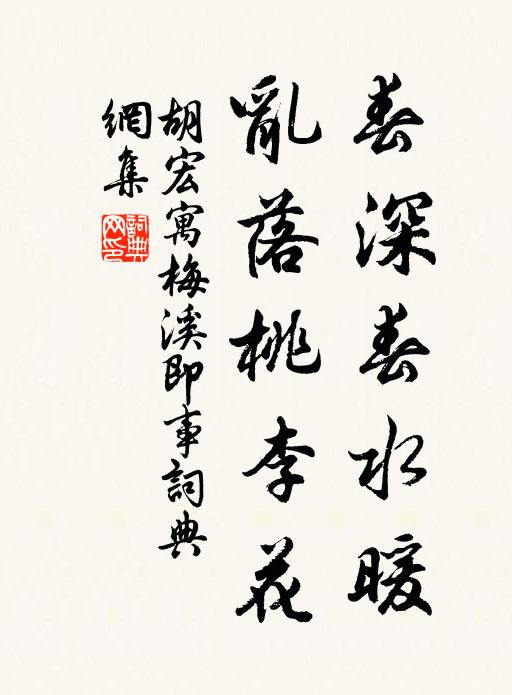 春深春水暖
亂落桃李花
胡宏寓梅溪即事詞典
網集
詞典
网印